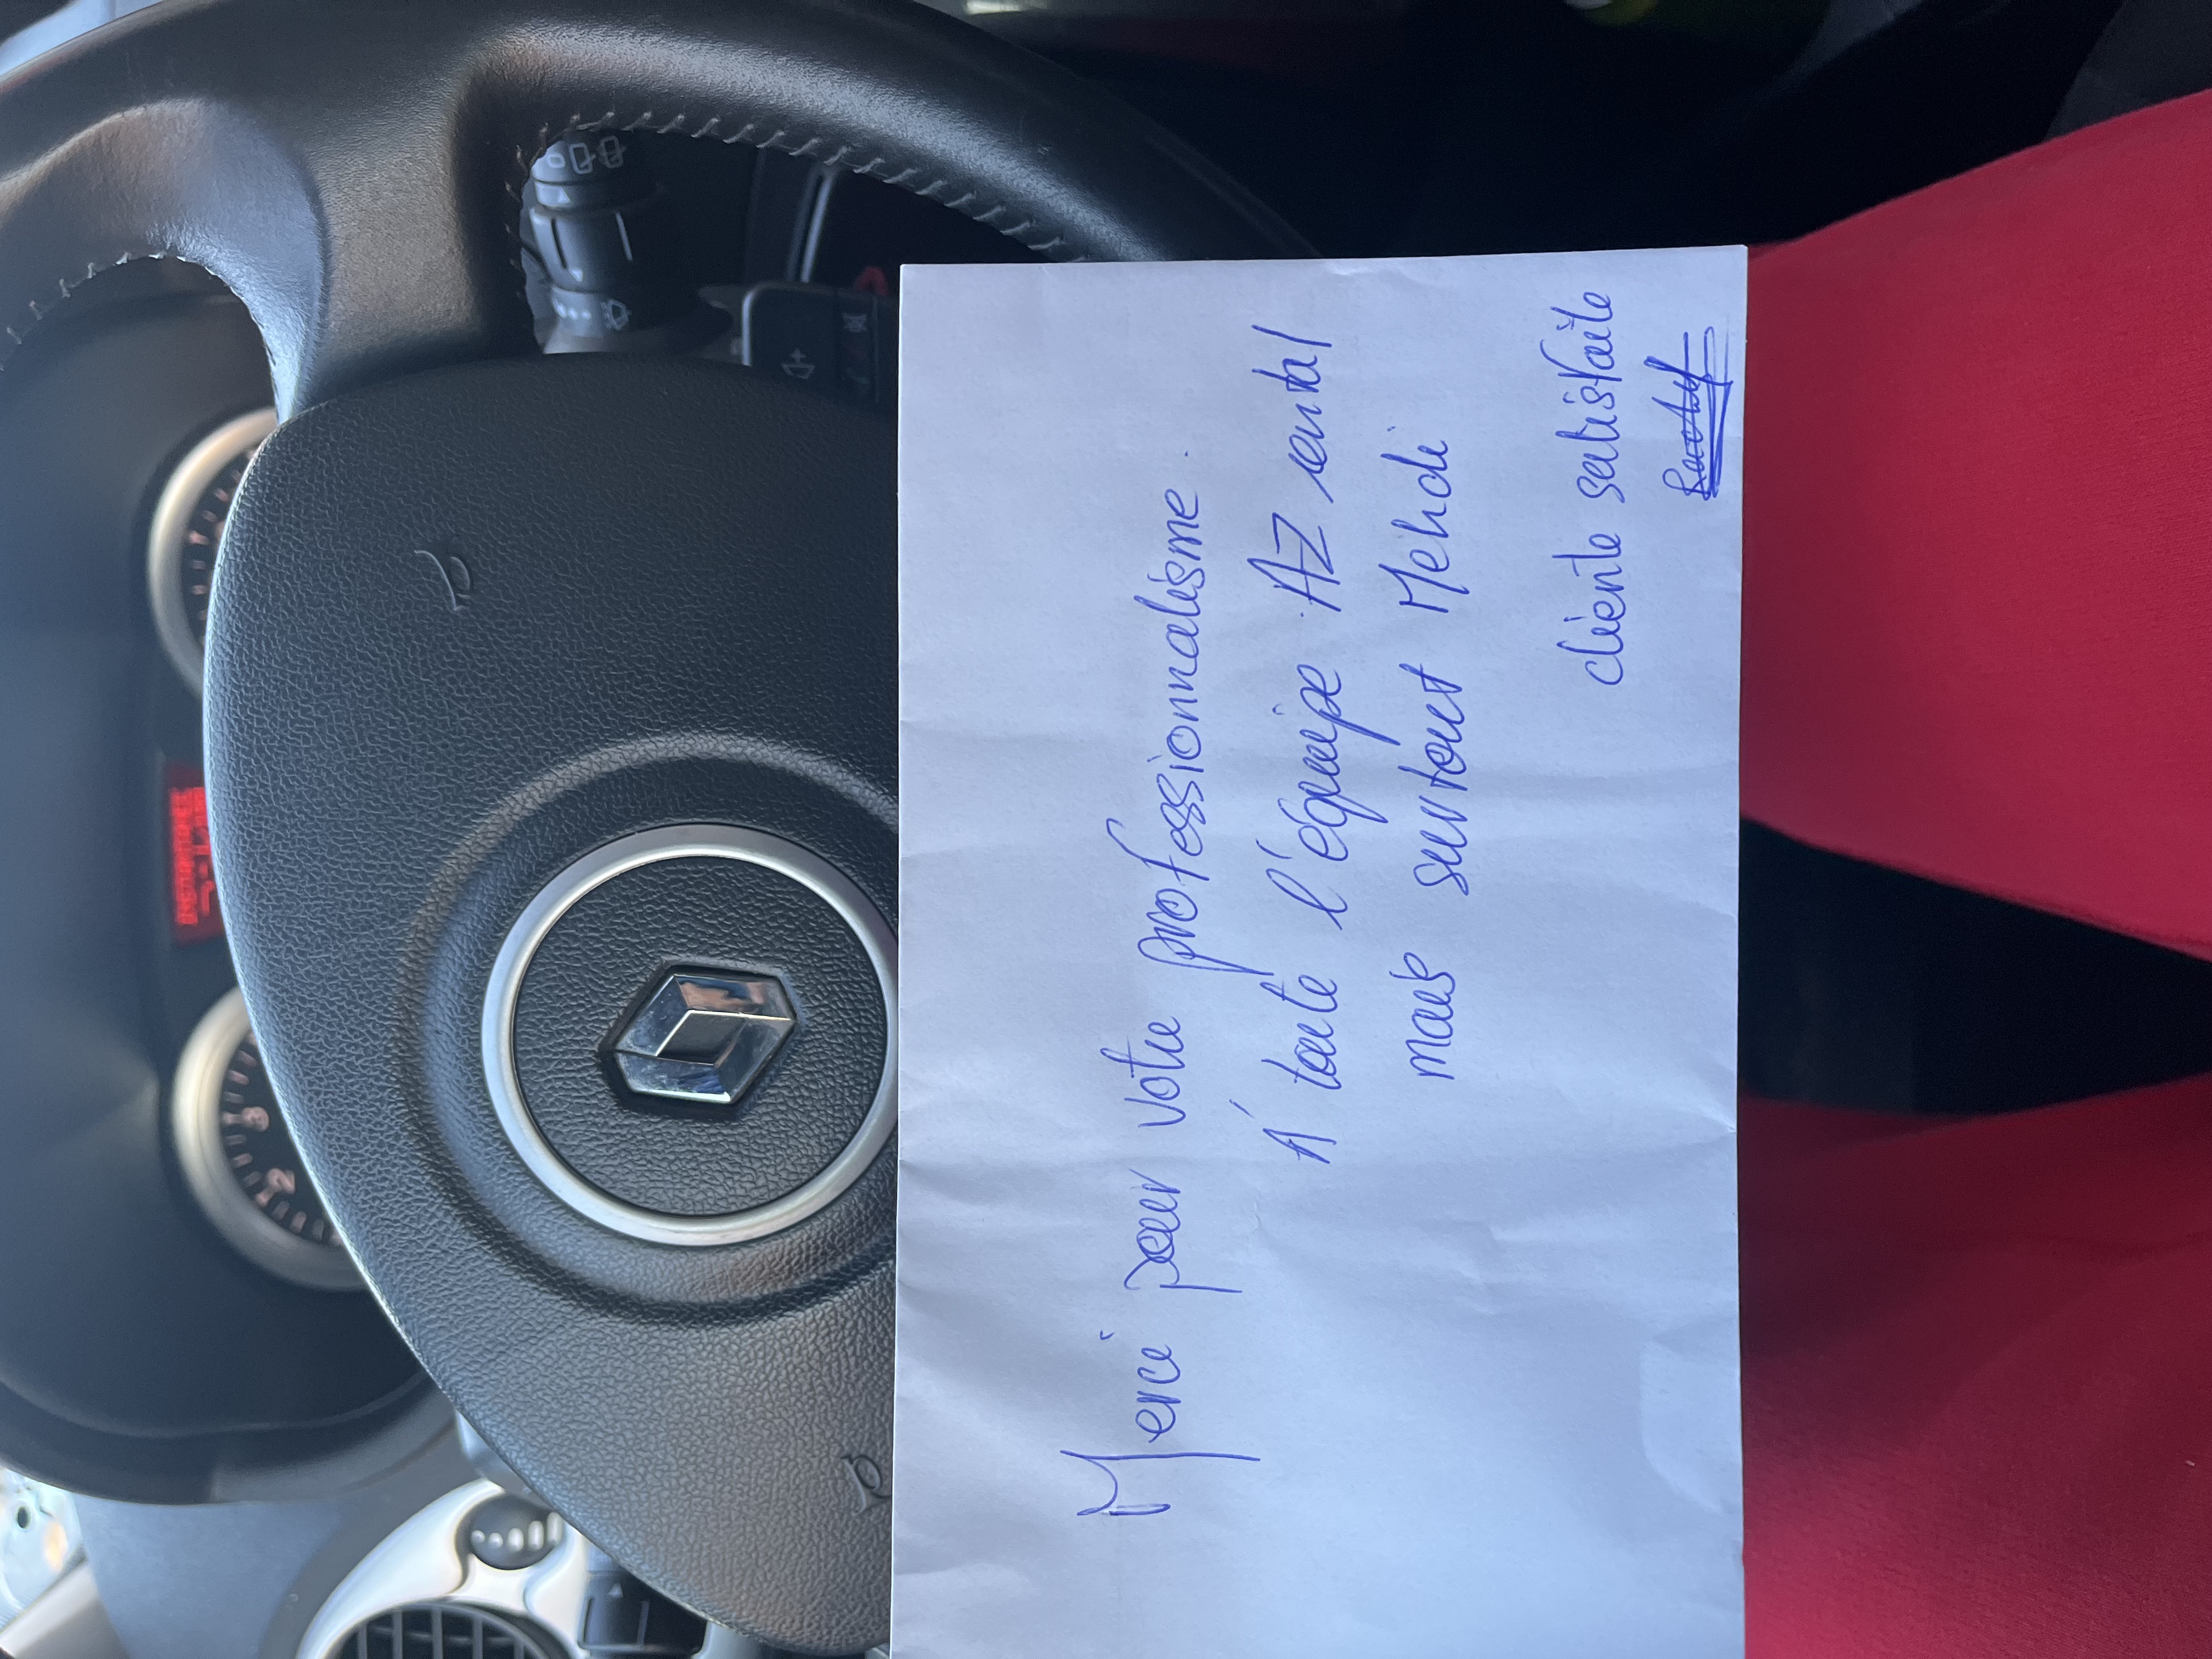 INSTANTANEE
2 3
Merci pour votre professionnalisme.
À toute l'équipe AZ rental
mais surtout Mehdi
cliente satisfaite